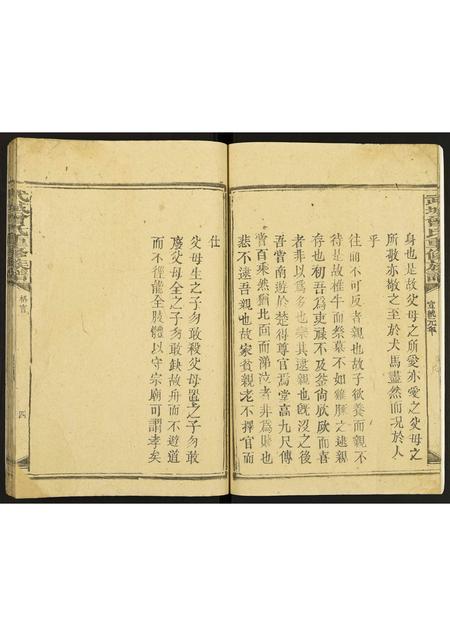 武城曾氏重修族譜
宣統元年
身也是故父母之所愛亦愛之父母之
所敬亦敬之至於犬馬盡然而況於人
乎
往而不可反者親也故子欲養而親不
待是故椎牛而祭墓不如雞豚之逮親
存也初吾為吏祿不及釜尚欣欣而喜
者非以為多也樂其逮親也旣沒之後
吾嘗南遊於楚得尊官焉堂高九尺傳
嘗百乘然猶北面而涕泣者非為賤也
悲不逮吾親也故家貧親老不擇官而
仕
父母生之子勿敢殺父母置之子勿敢
廢父母全之子勿敢缺故舟而不遊道
而不徑能全肢體以守宗廟可謂孝矣
武城曾氏重修族譜
四